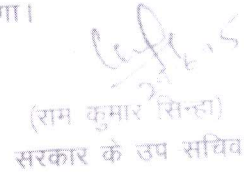 गा।
(राम कुमार सिन्हा)
सरकार के उप सचिव